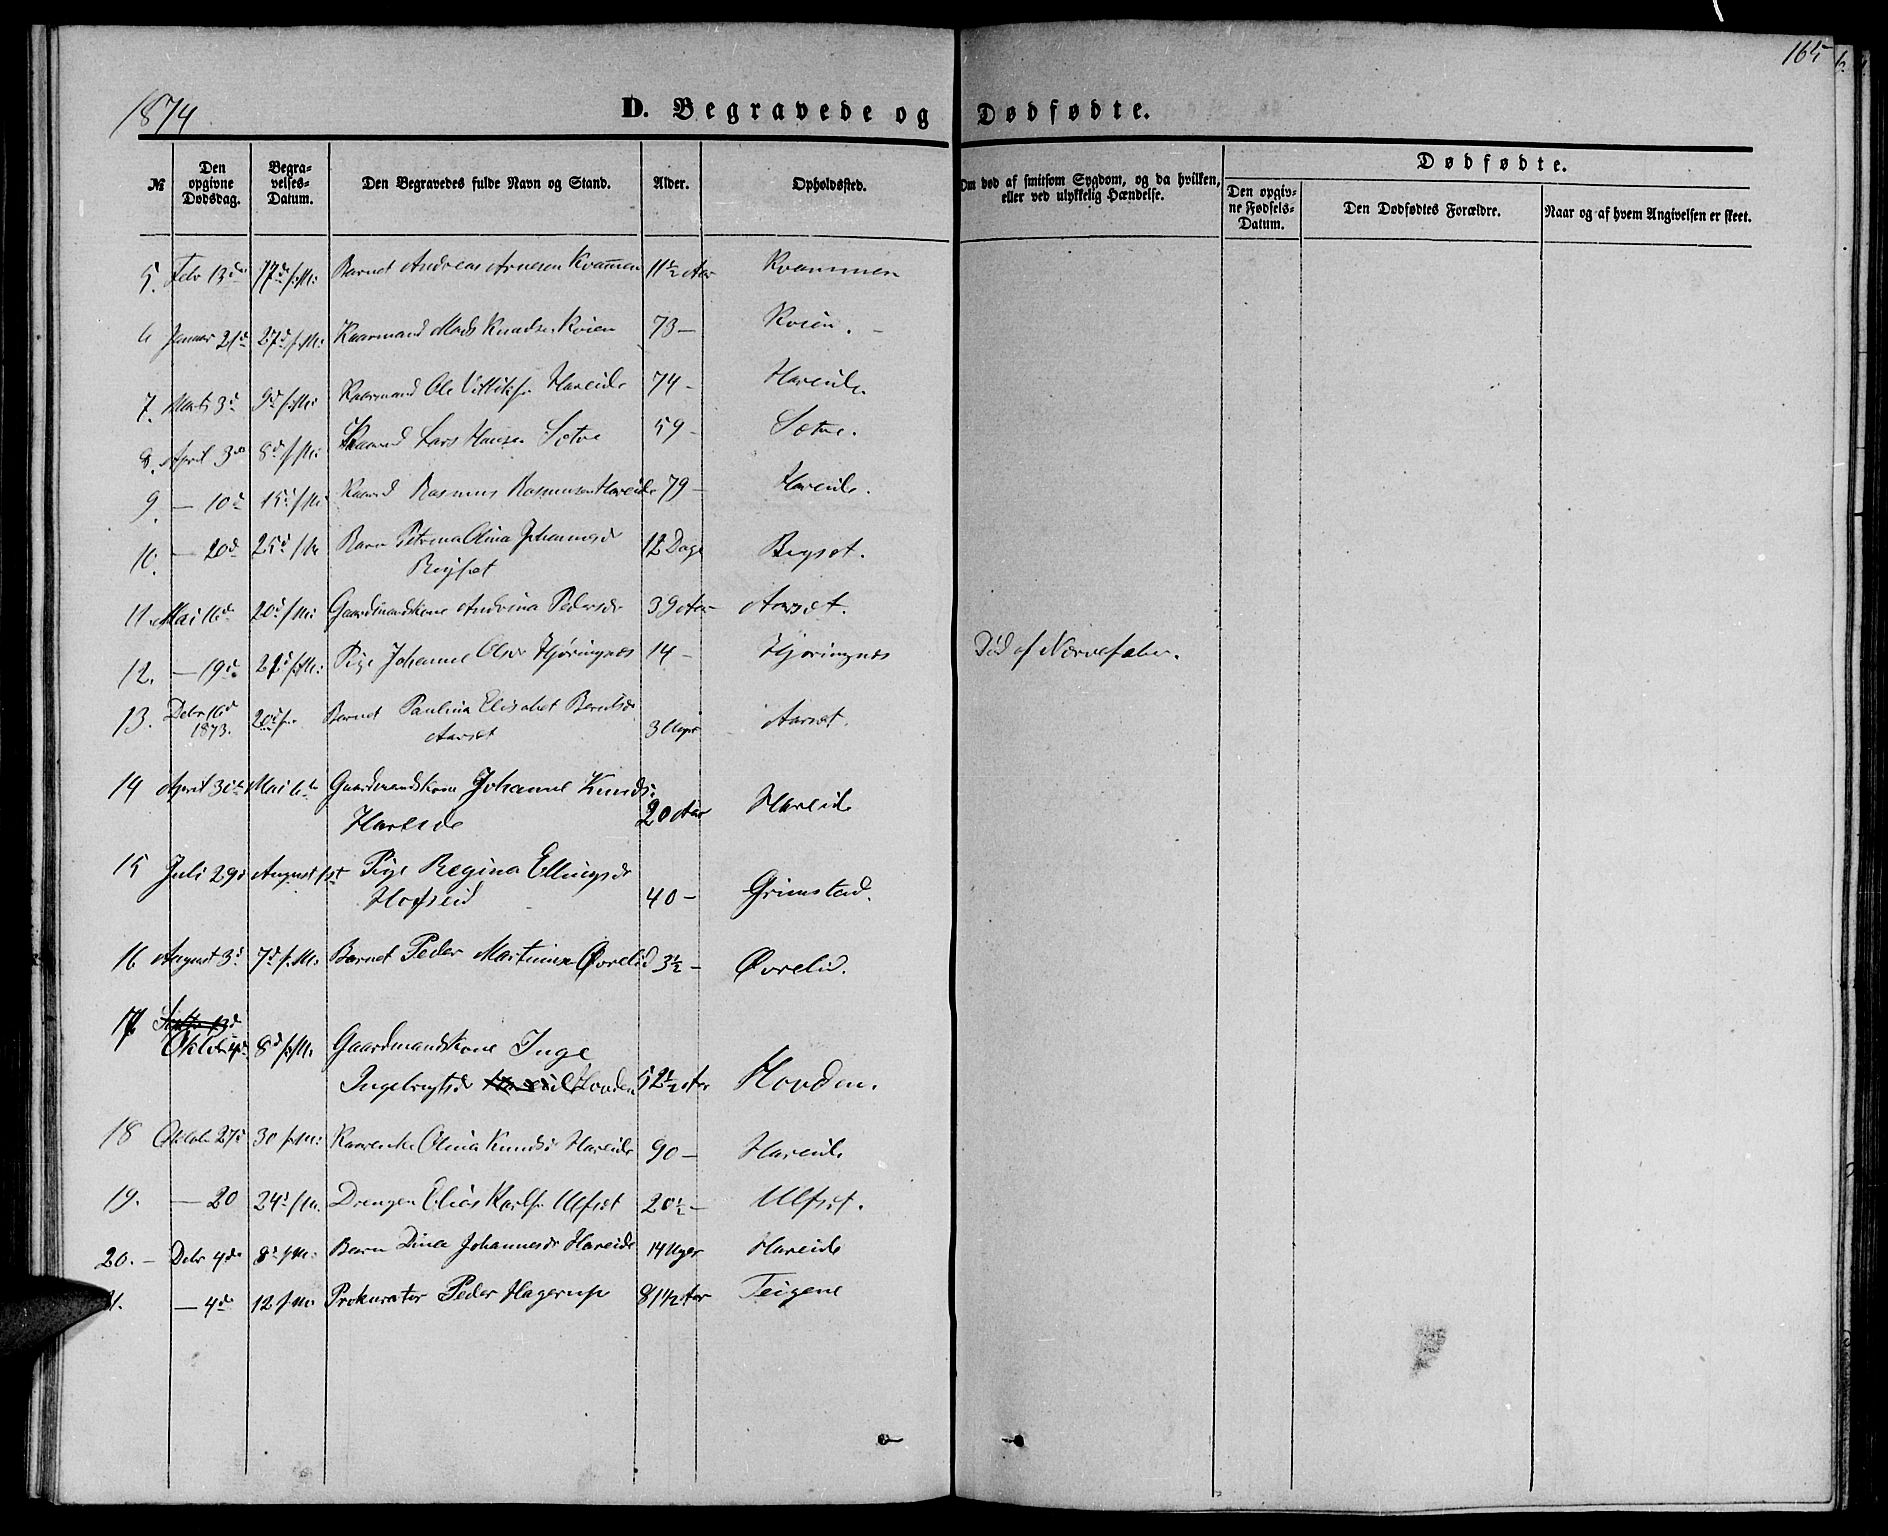 165
1874
D. Begravede og Dødfødte.
№
Den opgivne Dødsdag.
Begravelses-Datum.
Den Begravedes fulde Navn og Stand.
Alder.
Opholdssted.
Om død af smitsom Sygdom, og da hvilken, eller ved ulykkelig Hændelse.
Dødfødte.
Den opgivne Fødsels-Datum.
Den Dødfødtes Forældre.
Naar og af hvem Angivelsen er skeet.
5. Febr 13de 17d f.M. Barnet Andreas Arnesen Kvammen 11½ Aar Kvammen
6 Januar 21d 27d f.M. Kaarmand Mads Knudsen Kvien 73 — Kvien. —
7. Marts 3d 9d f.M. Kaarmand Ole Hareide 74 - Hareide.
8. April 3de 8d f.M. Lars Hansen Sætre 59 - Sætre.
9. — 10d 15d f.M. Kaarmd Rasmus Rasmussen Hareide 79 - Hareide.
10. — 20d 25d f.M. Barn Petrina Olina Johannesdr 12 Dage Bigset.
Bigset
11. Mai 16d 20d f.M. Gaardmandskone Andrina Pedersdr 39 Aar Aarsæt.
12. — 19d. 22d f.M. Pige Johanne Olsdr Hjøringnæs 14 - Hjøringnæs Død af Nervefeber.
13. Debr 16d 1873. 20d f. Barnet Paulina Elisabet Berntsdr 3 Uger Aarsæt.
Aarsæt
14 April 30te Mai 6te Gaardmandskone Johanne Knudsd:
Hareide 20 Aar Hareide
15 Juli 29d August 1st Pige Regina Ellingsdr
Hofseid 40 - Grimstad.
16 August 3d 7d f.M. Barnet Peder Martinsen Øvrelid 3½ - Øvrelid.
17. Septbr 13d
Oktbr 4de 8d f.M. Gaardmandskone Inge
Ingebrigtsdr Hovden 52½ Aar Hovden.
18 Oktobr 27d 30 f.M. Kaarenke Olina Knudsd Hareide 90 - Hareide
19. — 20 24d f.M. Drengen Elias Karlsen Ulfset 20½ - Ulfset.
20. - Debr 4de 8d f.M. Barn Dina Johannesdr Hareide 14 Uger Hareide
21. — 4de 12 f.M. Prokurator Peder Hagerup 81½ Aar Teigene